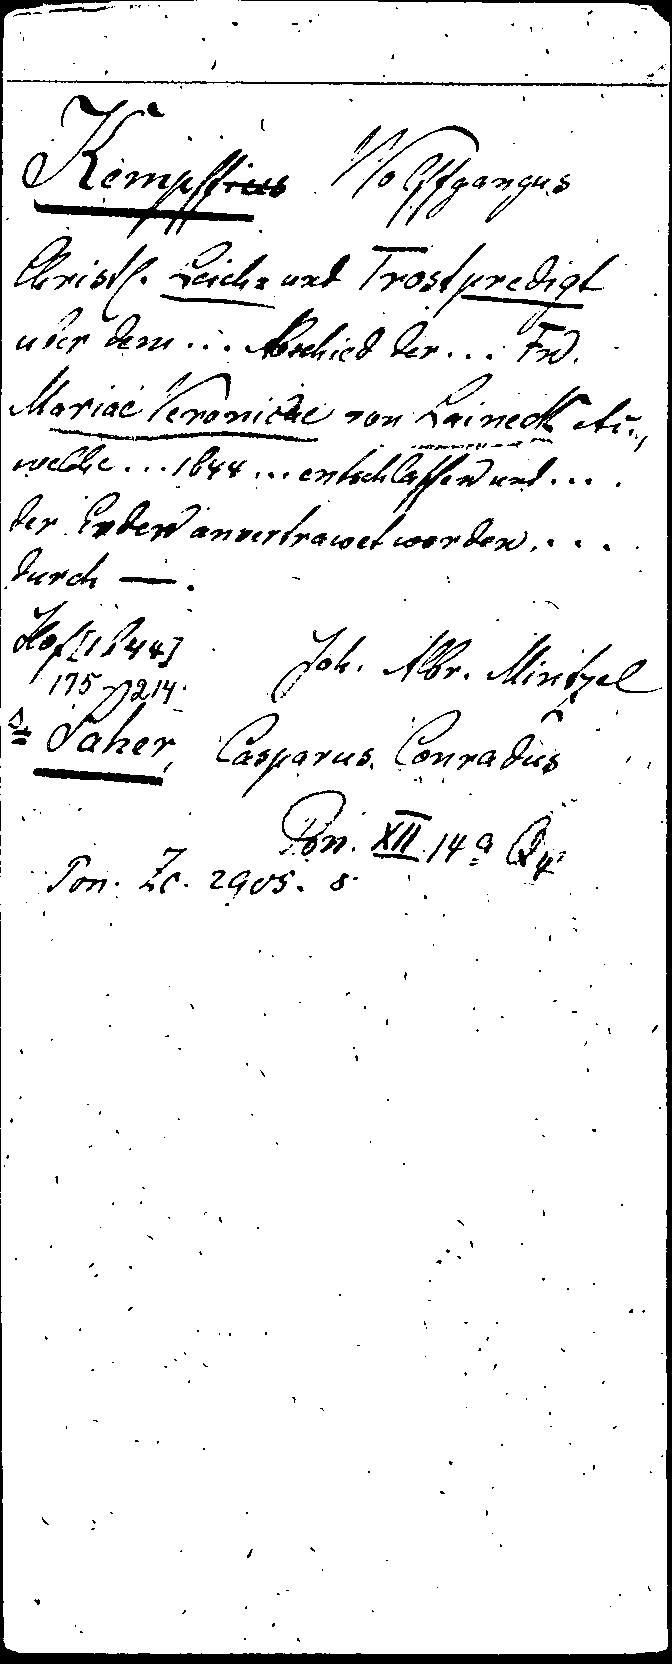 Kempffius Wolffgangus
Christl. Leich= und Trostpredigt
uber dem ... Abschied der ... Frd.
Mariae Veronicae von Laineck
welche ... 1644 ... entschlaffen und ....
der Erden anvertrawet worden. ...
durch —.
Hof [1644] Joh. Albr. Mintzel
175 - 214.
Saher, Casparus Conradus
Pon. XII. 14 a
Pon. Zc. 2905. 8